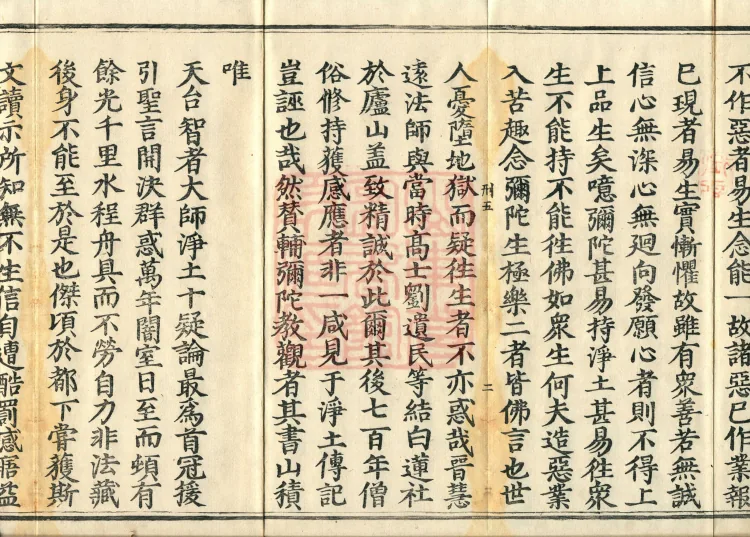 不作惡者易生念能一故諸惡已作業報
已現者易生實慚懼故雖有衆善若無誠
信心無深心無迴向發願心者則不得上
上品生矣噫彌陀甚易持淨土甚易徃衆
生不能持不能徃佛如衆生何夫造惡業
入苦趣念彌陀生極樂二者皆佛言也世
刑五
二
人憂墮地獄而疑徃生者不亦惑哉晉慧
遠法師與當時髙士劉遺民等結白蓮社
於廬山葢致精誠於此爾其後七百年僧
俗修持獲感應者非一咸見于淨土傳記
豈誣也哉然賛輔彌陀教觀者其書山積
唯
天台智者大師淨土十疑論最為首冠援
引聖言開決群惑萬年闇室日至而頓有
餘光千里水程舟具而不勞自力非法藏
後身不能至於是也傑頃於都下甞獲斯
文讀示所知無不生信自遭酷罰感寤益